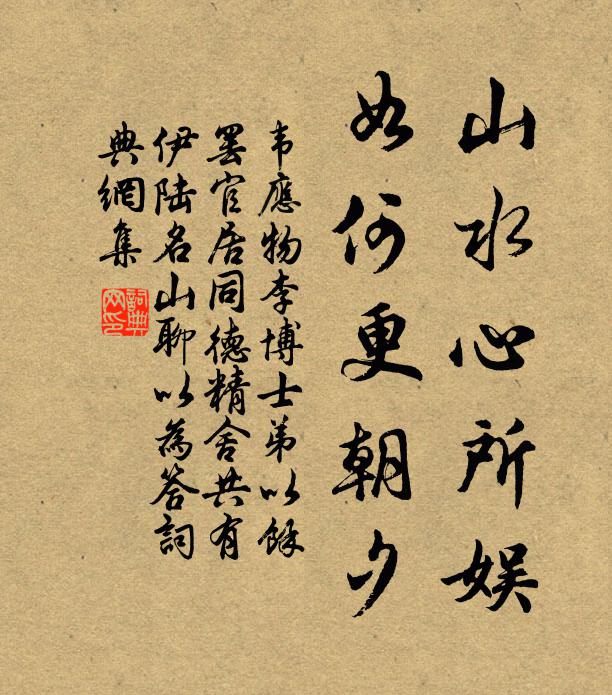 山水心所娱
如何更朝夕
韦應物李博士弟以餘
罢官居同德精舍共有
伊陆名山聊以為答詞
典網集
詞典網印